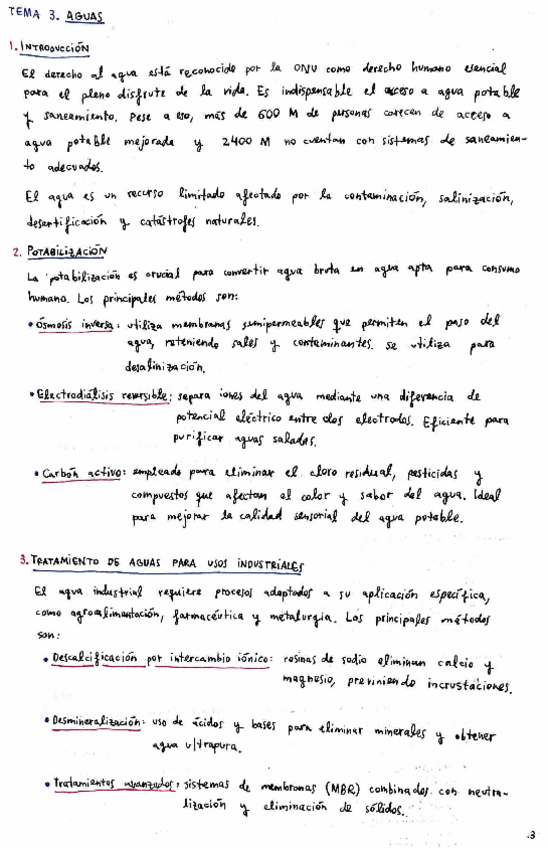 TEMA 3. AGUAS
1. INTRODUCCIÓN
El derecho al agua está reconocido por la ONU como derecho humano esencial
para el pleno disfrute de la vida. Es indispensable el acceso a agua potable
y saneamiento. Pese a eso, más de 600 M de personas carecen de acceso a
agua potable mejorada y 2400 M no cuentan con sistemas de saneamien-
to adecuados.
El agua es un recurso limitado afectado por la contaminación, salinización,
desertificación y catástrofes naturales.
2. POTABILIZACIÓN
La potabilización es crucial para convertir agua bruta en agua apta para consumo
humano. Los principales métodos son:
• Ósmosis inversa: utiliza membranas semipermeables que permiten el paso del
agua, reteniendo sales y contaminantes. Se utiliza para
desalinización.
• Electrodiálisis reversible: separa iones del agua mediante una diferencia de
potencial eléctrico entre dos electrodos. Eficiente para
purificar aguas saladas.
• Carbón activo: empleado para eliminar el cloro residual, pesticidas y
compuestos que afectan al color y sabor del agua. Ideal
para mejorar la calidad sensorial del agua potable.
3. TRATAMIENTO DE AGUAS PARA USOS INDUSTRIALES
El agua industrial requiere procesos adaptados a su aplicación específica,
como agroalimentación, farmacéutica y metalurgia. Los principales métodos
son:
• Descalcificación por intercambio iónico: resinas de sodio eliminan calcio y
magnesio, previniendo incrustaciones.
• Desmineralización: uso de ácidos y bases para eliminar minerales y obtener
agua ultrapura.
• Tratamientos avanzados: sistemas de membranas (MBR) combinados con neutra-
lización y eliminación de sólidos.
3